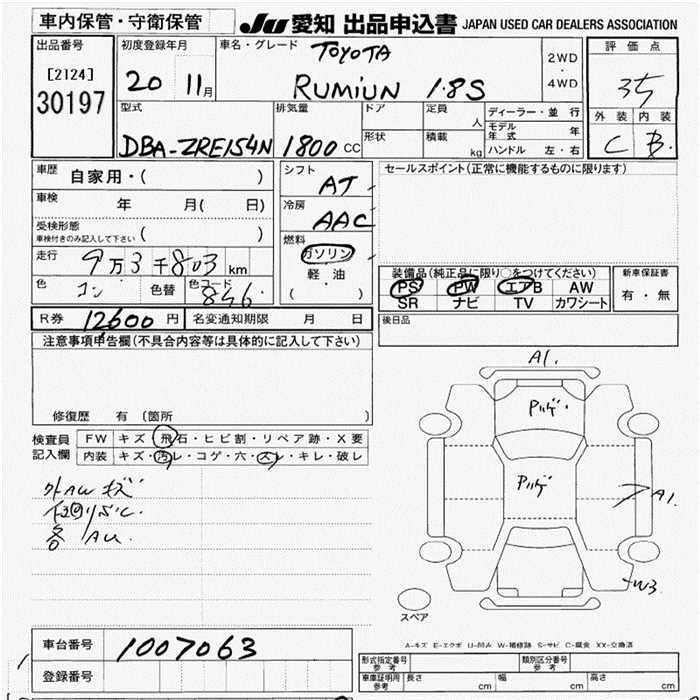 車内保管・守衛保管
JU 愛知 出品申込書 JAPAN USED CAR DEALERS ASSOCIATION
出品番号
[2124]
30197
初度登録年月
20 11月
車名・グレード
TOYOTA
RUMIUN 1.8S
2WD
・
4WD
評価点
3.5
外装 内装
C B
型式
DBA-ZRE154N
排気量
1800 CC
ドア
形状
定員
人
積載
kg
ディーラー・並行
モデル年式 年
ハンドル 左・右
車歴
自家用・( )
車検
年 月( 日)
受検形態
車検付きのみ記入して下さい ( )
走行
9万3千803km
色
コン
色替
色コード
846
シフト
AT
冷房
AAC
燃料
ガソリン
軽・油
( )
セールスポイント(正常に機能するものに限ります)
装備品(純正品に限り○をつけてください)
PS PW エアB AW
SR ナビ TV カワシート
新車保証書
有・無
R券 12600円
名変通知期限 月 日
後日品
注意事項申告欄(不具合内容等は具体的に記入して下さい)
修復歴 有 (箇所
検査員
記入欄
FW キズ・飛石・ヒビ割・リペア跡・X要
内装 キズ・汚レ・コゲ・穴・スレ・キレ・破レ
外AWキズ
各 AU.
A1.
ハゲ・
ハゲ
A1.
W3
スペア
A-キズ E-エクボ U-凹み W-補修跡 S-サビ C-腐食 XX-交換済
車台番号
1007063
登録番号
型式指定番号
参考
類別区分番号
参考
車庫証明用
参考
長さ cm
幅 cm
高さ cm